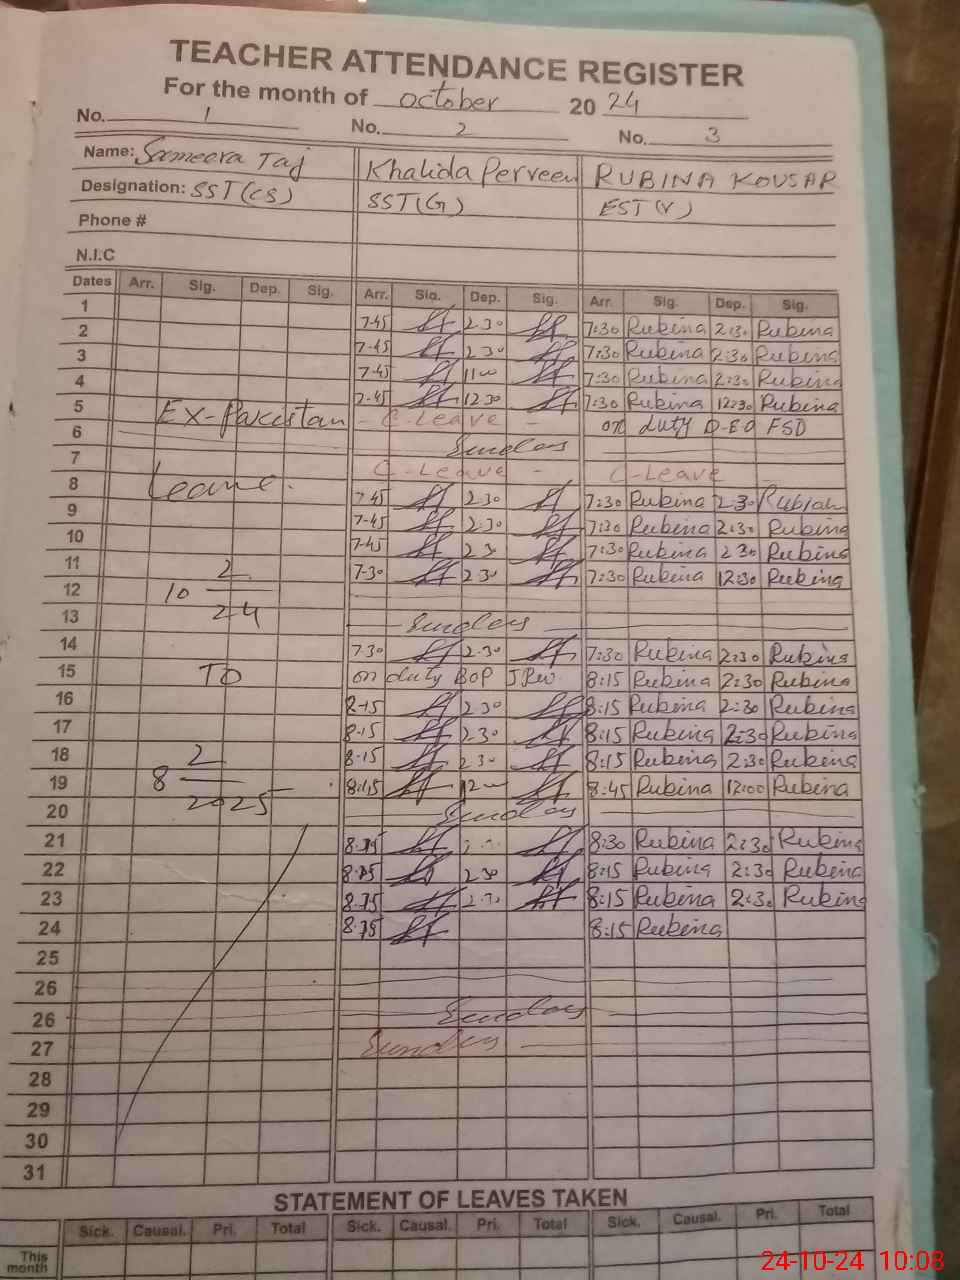 TEACHER ATTENDANCE REGISTER
For the month of October 2024
No. 1 No. 2 No. 3
Name: Sameera Taj Khalida Perveen RUBINA KOUSAR
Designation: SST (CS) SST(G) EST (V)
Phone #
N.I.C
Dates Arr. Sig. Dep. Sig. Arr. Sig. Dep. Sig. Arr. Sig. Dep. Sig.
1 7-45 2.30 7:30 Rubina 2:30 Rubina
2 7-45 2.30 7:30 Rubina 2:30 Rubina
3 7-45 11-00 7:30 Rubina 2:30 Rubina
4 7-45 12.30 7:30 Rubina 12:30 Rubina
5 EX-Pakistan - C-Leave - on duty D-EO FSD
6 Sunday
7 C-Leave - C-Leave -
8 Leave. 7-45 2.30 7:30 Rubina 2:30
9 7-45 2.30 7:30 Rubina 2:30 Rubina
10 7-45 2.30 7:30 Rubina 2:30 Rubina
11 2 7-30 2.30 7:30 Rubina 12:30 Rubina
12 10
13 24 Sunday
14 7-30 2.30 7:30 Rubina 2:30 Rubina
15 TO on duty BOP 8:15 Rubina 2:30 Rubina
16 8-15 2.30 8:15 Rubina 2:30 Rubina
17 8-15 2.30 8:15 Rubina 2:30 Rubina
18 2 8-15 2.30 8:15 Rubina 2:30 Rubina
19 8 8:15 12-00 8:45 Rubina 12:00 Rubina
20 2025 Sunday
21 8:30 Rubina 2:30 Rubina
22 2.30 8:15 Rubina 2:30 Rubina
23 2.30 8:15 Rubina 2:30 Rubina
24 8:15 Rubina
25
26
26 Sunday
27 Sunday
28
29
30
31
STATEMENT OF LEAVES TAKEN
Sick. Causal. Pri. Total Sick. Causal. Pri. Total Sick. Causal. Pri. Total
This month
24-10-24 10:08